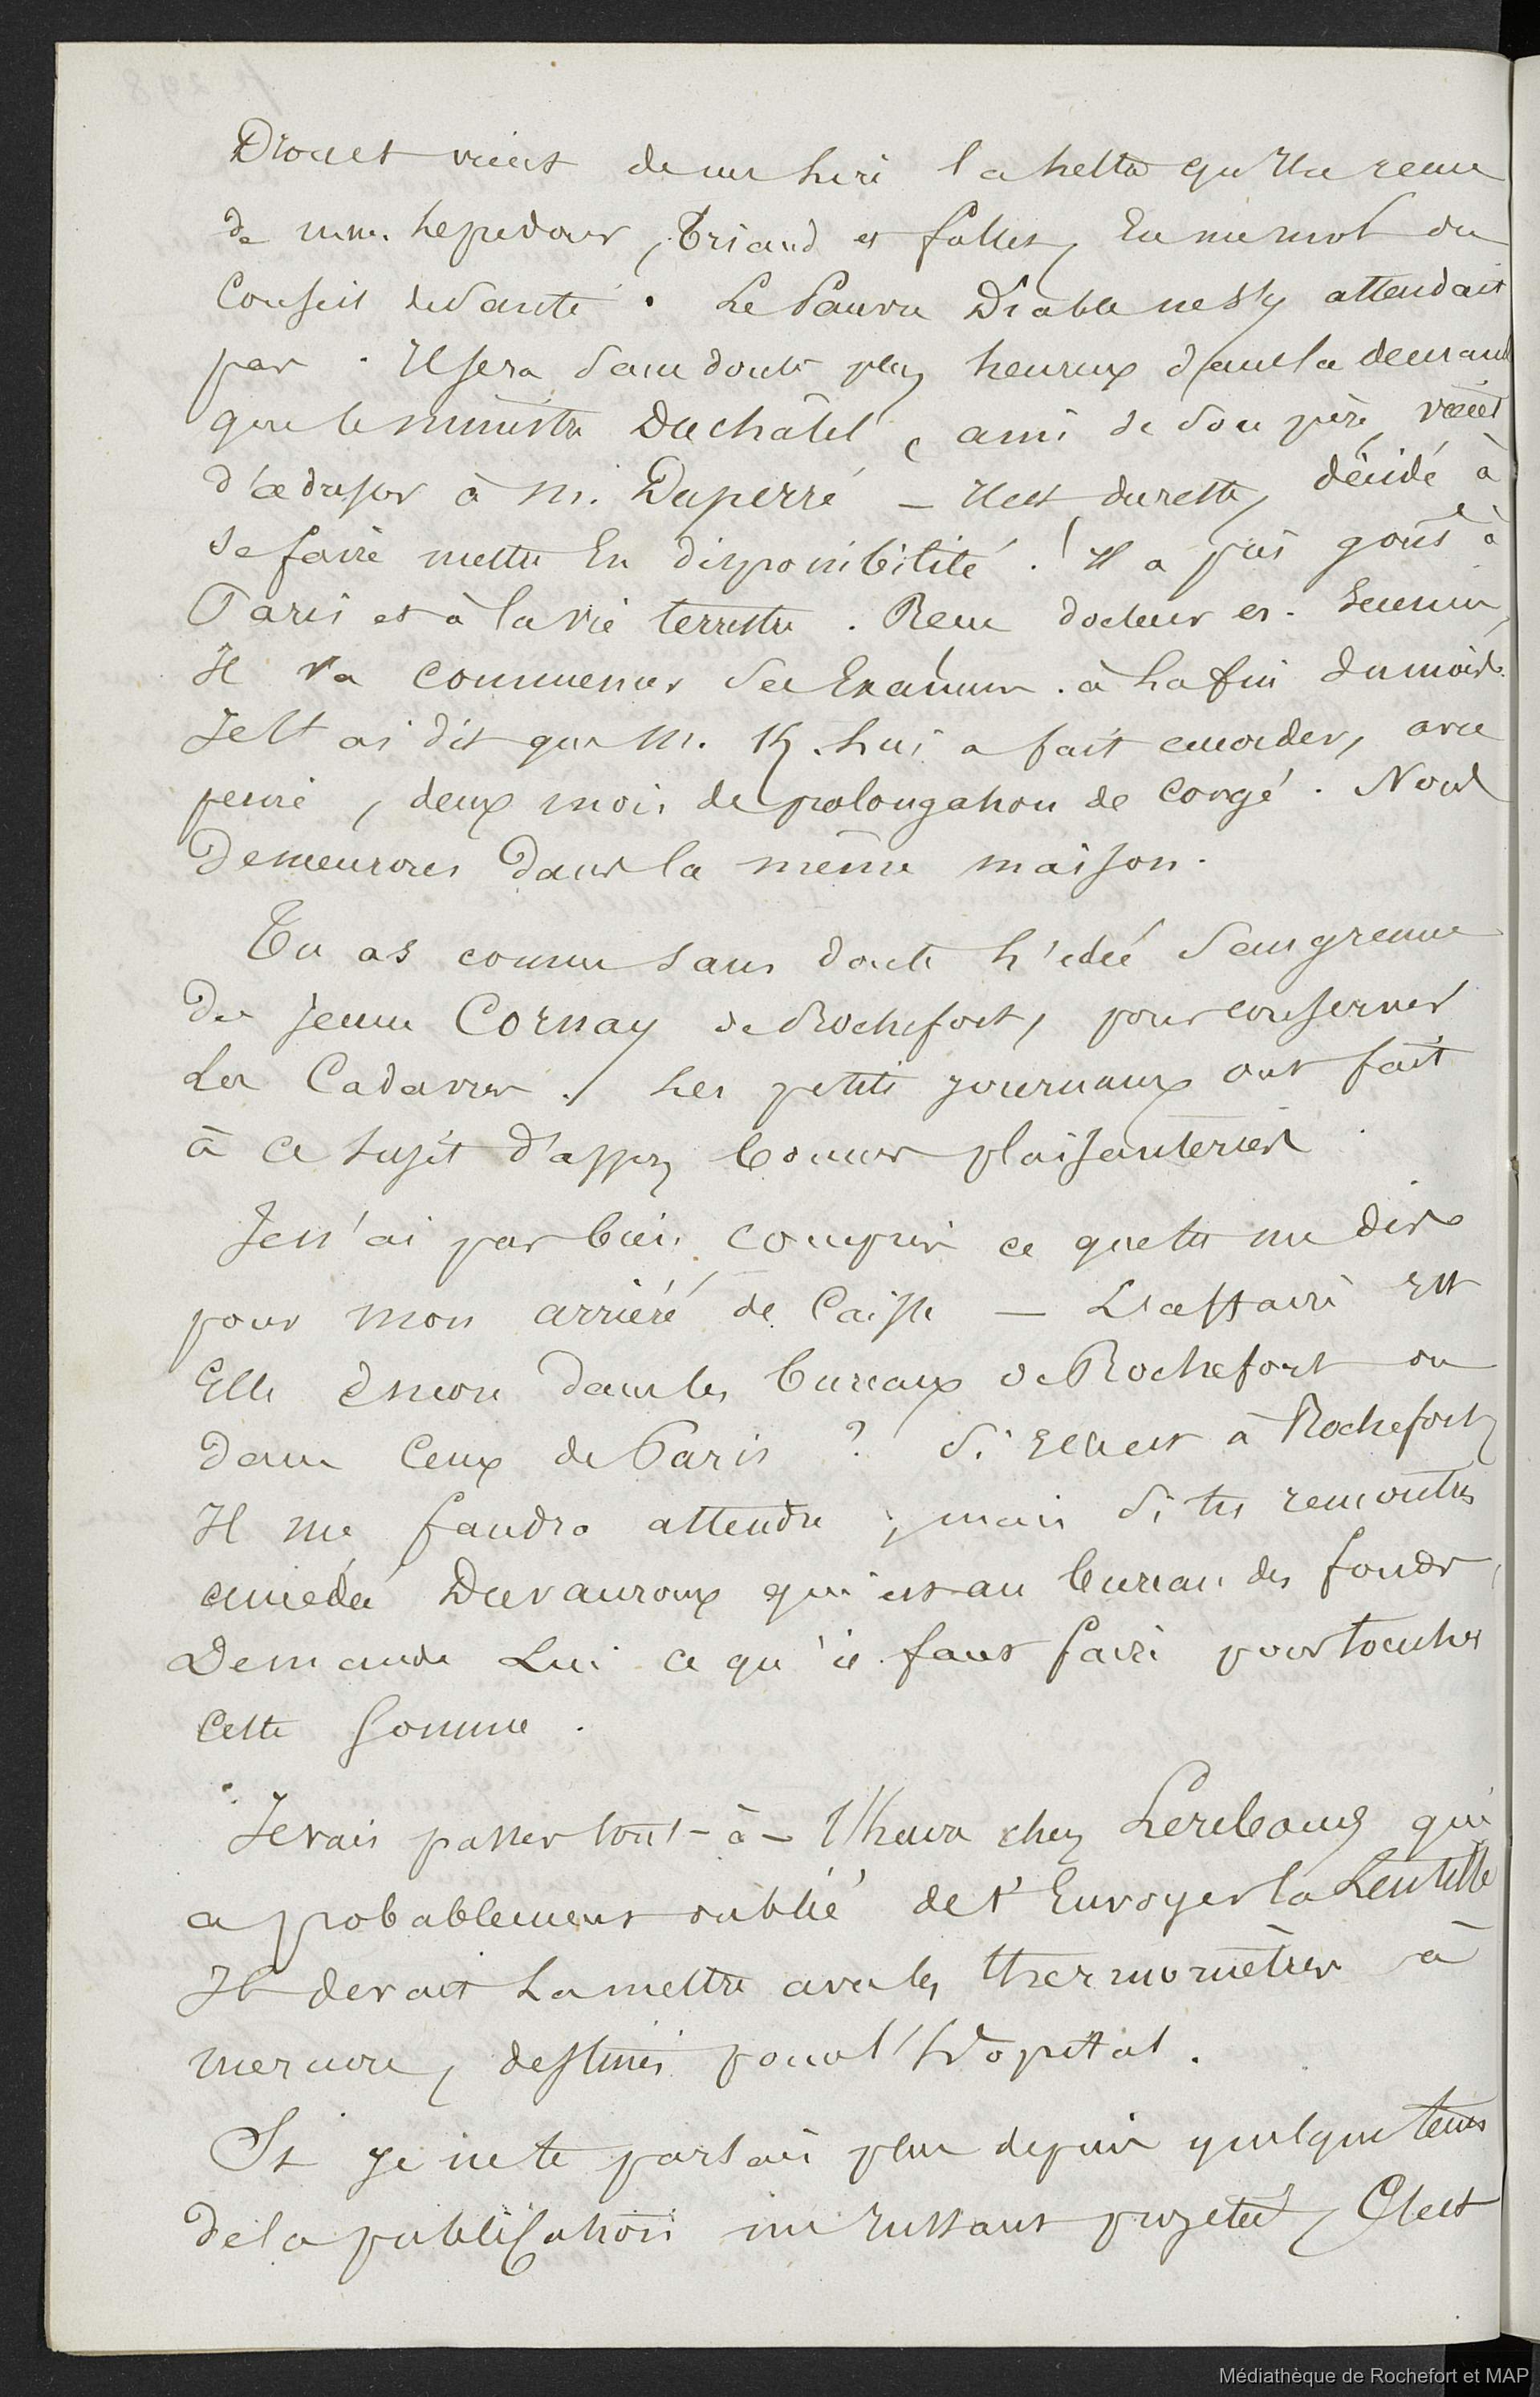 Drouet vient de me lire la lettre qu'il a reçue
de mm. Lepredour, Triaud et follet, en un mot du
Conseil de Santé. Le Pauvre Diable ne s'y attendait
pas. Il sera sans doute plus heureux dans la demande
que le ministre Duchâtel, ami de son père, vient
d'adresser à M. Duperré — Il est du reste, décidé à
se faire mettre En disponibilité! Il a pris goût à
Paris et à la vie terrestre. Reçu docteur es-sciences,
Il va commencer ses Examens à la fin du mois.
Je t'ai dit que M. K. lui a fait accorder, avec
peine, deux mois de prolongation de Congé. Nous
Demeurons Dans la même maison.
Tu as connu sans doute l'idée saugrenue
du jeune Cornay de Rochefort, pour conserver
les Cadavres. Les petits journaux ont fait
à ce sujet d'assez bonnes plaisanteries.
Je n'ai pas bien compris ce que tu me dis
pour mon arriéré de Caisse — L'affaire Est
Elle encore dans les bureaux de Rochefort ou
dans Ceux de Paris ? Si Elle est à Rochefort
Il me faudra attendre ; mais si tu rencontres
amédée Duvauroux qui est au bureau des fonds,
Demande Lui ce qu'il faut faire pour toucher
cette somme.
Je vais passer tout-à-l'heure chez Lerebours qui
a probablement oublié de t'Envoyer la Lentille
Il devait La mettre avec les thermomètres à
mercure, destinés pour l'hôpital.
Si je ne te parlais plus depuis quelque tems
de la publication m'intéressant projetée, C'est